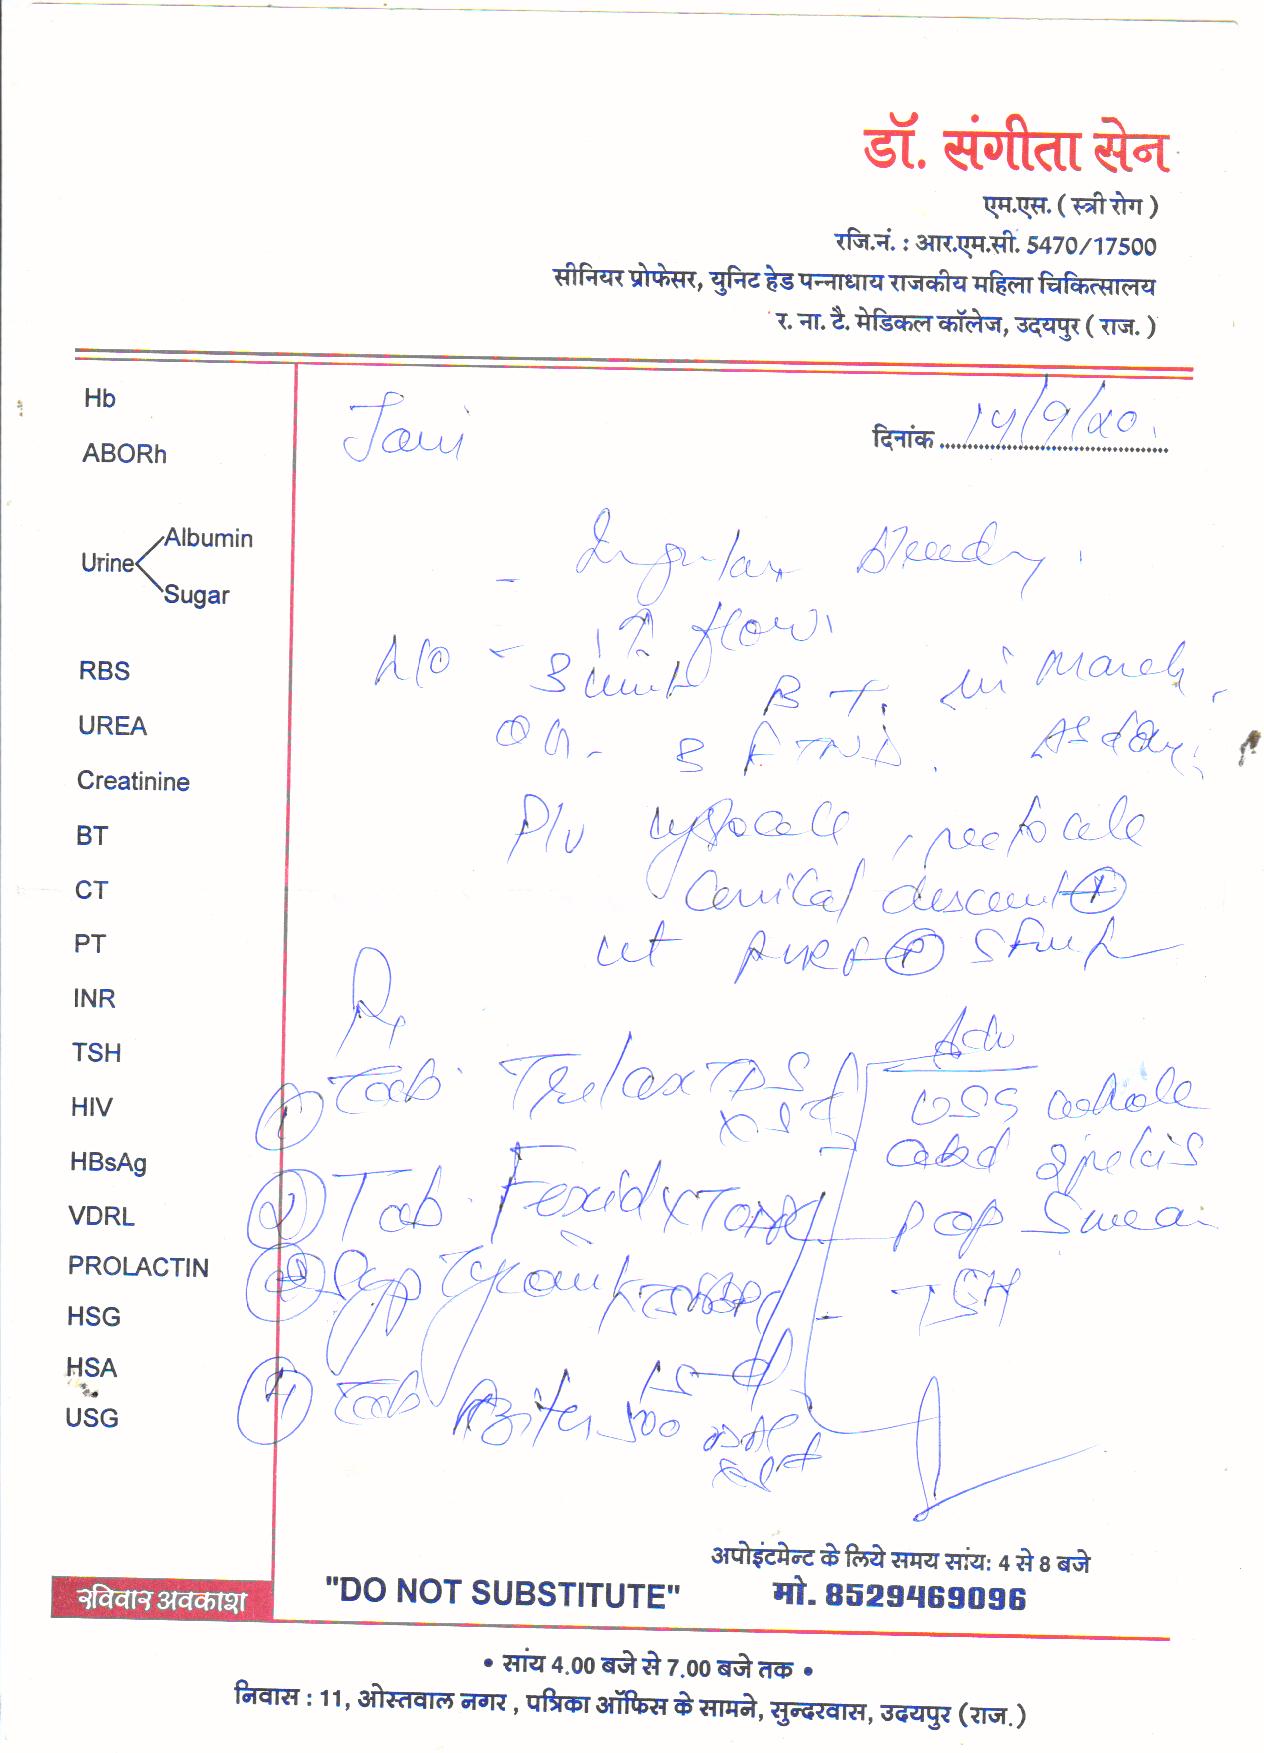 डॉ. संगीता सेन
एम.एस. ( स्त्री रोग )
रजि.नं. : आर.एम.सी. 5470/17500
सीनियर प्रोफेसर, युनिट हेड पन्नाधाय राजकीय महिला चिकित्सालय
र. ना. टै. मेडिकल कॉलेज, उदयपुर ( राज. )
दिनांक 14/9/20.
Hb
ABORh
Urine Albumin
Sugar
RBS
UREA
Creatinine
BT
CT
PT
INR
TSH
HIV
HBsAg
VDRL
PROLACTIN
HSG
HSA
USG
- Irregular Bleeding.
↑ flow
H/O - 3 unit B.T. in March.
P/V cystocele, rectocele
Cervical descent +
ut
Rx
Adv
① Tab. TDS
USG whole
abd & pelvis
② Tab.
Pap Smear
③ Syp
- TSH
④ Tab 500
अपोइंटमेन्ट के लिये समय सांय: 4 से 8 बजे
रविवार अवकाश
"DO NOT SUBSTITUTE"
मो. 8529469096
• सांय 4.00 बजे से 7.00 बजे तक •
निवास : 11, ओस्तवाल नगर , पत्रिका ऑफिस के सामने, सुन्दरवास, उदयपुर (राज.)